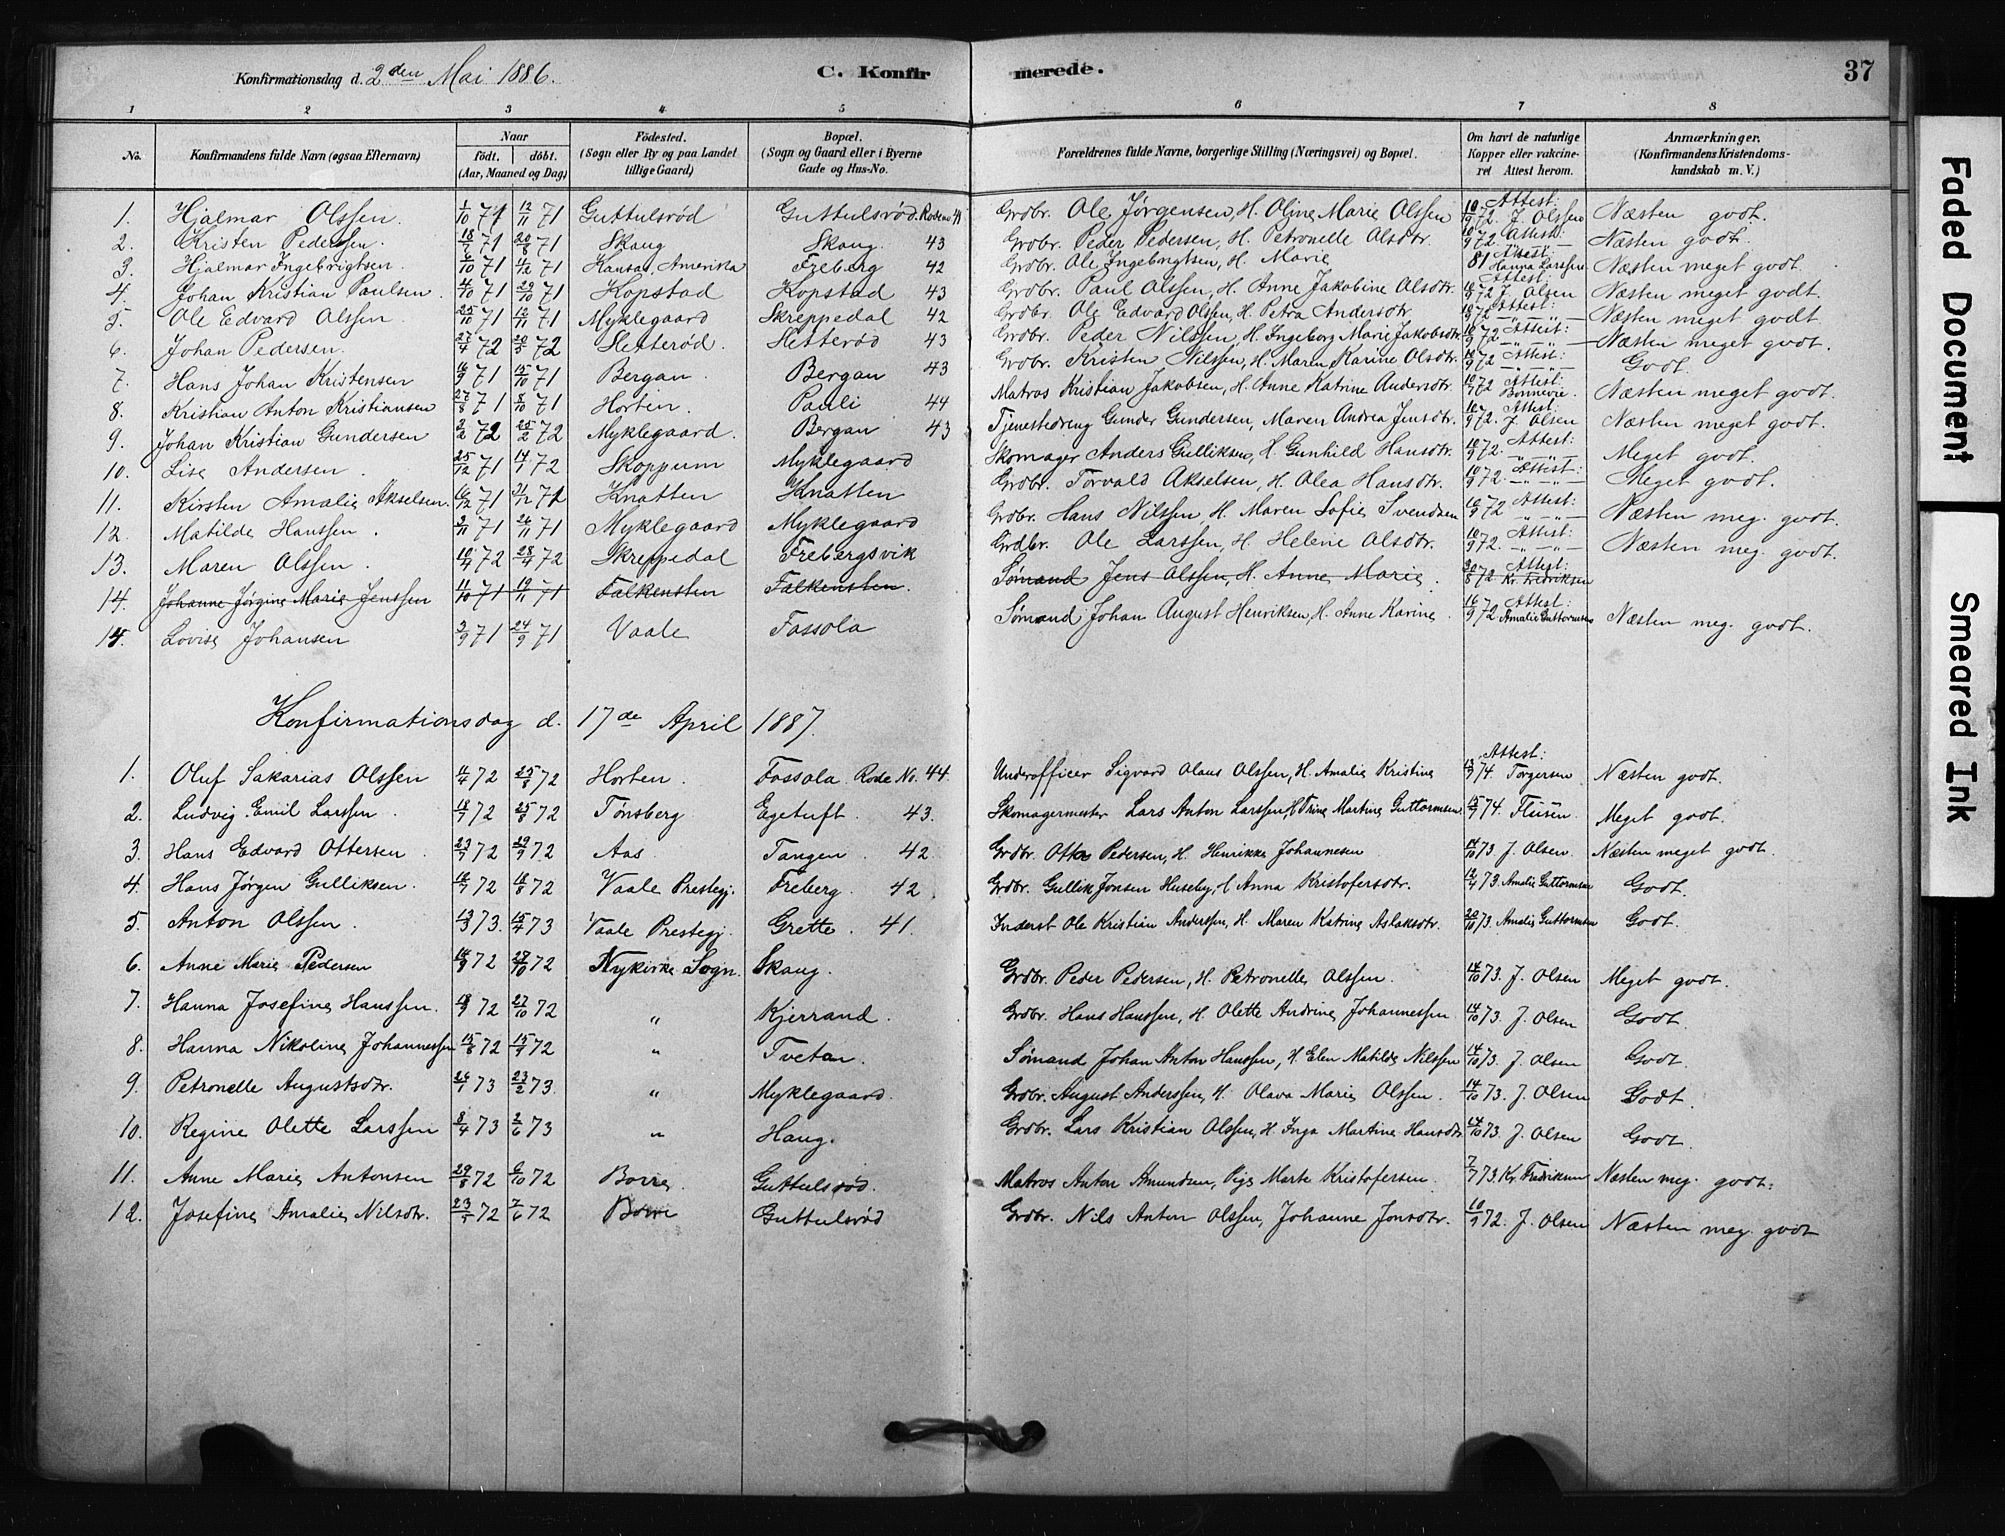 Konfirmationsdag d. 2den Mai 1886. C. Konfirmerede. 37
1 2 3 4 5 6 7 8
No. Konfirmandens fulde Navn (ogsaa Efternavn) Naar født. døbt. (Aar, Maaned og Dag) Fødested. (Sogn eller By og paa Landet tillige Gaard) Bopæl. (Sogn og Gaard eller i Byerne Gade og Hus-No. Forældrenes fulde Navne, borgerlige Stilling (Næringsvei) og Bopæl. Om havt de naturlige Kopper eller vakcineret Attest herom. Anmærkninger. (Konfirmandens Kristendomskundskab m. V.)
1. Hjalmar Olssen. 1/10 71 12/11 71 Guttulsrød Guttulsrød. Grdbr. Ole Jørgensen, H. Oline Marie Olssen 10/9 72. Attest: J. Olssen Næsten godt.
2. Kristen Pedersen. 18/7 71 20/8 71 Skaug Skaug. 43 Grdbr. Peder Pedersen, H. Petronelle Olsdtr. 10/9 72 Attest: „ „ Næsten godt.
3. Hjalmar Ingebrigtsen. 6/10 71 71 Kansas, Amerika Freberg 42 Grdbr. Ole Ingebrigtsen, H. Marie 81 Attest: Hanna Larssen Næsten meget godt.
4. Johan Kristian Paulsen. 4/10 71 29/10 71 Kopstad Kopstad 43 Grdbr. Paul Olssen, H. Anne Jakobine Olsdtr. 72 Attest: J. Olsen Næsten meget godt.
5. Ole Edvard Olssen. 25/10 71 12/11 71 Myklegaard Skreppedal 42 Grdbr. Ole Edvard Olssen, H. Petra Andersdtr. 72 Attest: „ „ Næsten meget godt
6. Johan Pedersen. 27/4 72 20/5 72 Sletterød. Sletterød 43 Grdbr. Peder Nilssen, H. Ingeborg Marie Jakobsdtr. 10/9 72 Attest: „ „ Næsten meget godt.
7. Hans Johan Kristensen 16/9 71 15/10 71 Bergan. Bergan 43 Grdbr. Kristen Nilssen, H. Maren Karine Olsdtr. 72 Attest: „ „ Godt.
8. Kristian Anton Kristiansen 27/8 71 8/10 71 Horten. Pauli 44 Matros Kristian Jakobsen, H. Anne Katrine Andersdtr. 72 Attest: Bonnevie. Næsten meget godt.
9. Johan Kristian Gundersen 2/2 72 25/2 72 Myklegaard. Bergan 43 Tjenestedreng Gunder Gundersen, Maren Andrea Jensdtr. 10/9 72. Attest: J. Olsen Næsten meget godt.
10. Lise Andersen. 25/12 71 14/1 72 Skoppum Myklegaard Skomager Anders Gulliksen, H. Gunhild Hansdtr. 10/9 72. Attest: „ „ Meget godt.
11. Kirsten Amalie Akselsen. 71 Knatten Knatten Grdbr. Torvald Akselsen, H. Olea Hansdtr. 10/9 72. Attest: „ „ Meget godt.
12. Matilde Hanssen. 71 26/11 71 Myklegaard Myklegaard Grdbr. Hans Nilssen, H. Maren Sofie Svendsen 10/9 72 Attest: „ „ Næsten meg. godt.
13. Maren Olssen. 10/4 72 28/4 72 Skreppedal Frebergsvik Grdbr. Ole Larssen, H. Helene Olsdtr. 10/9 72. Attest: „ „ Næsten meg. godt.
14. Johanne Jørgine Marie Jenssen 11/10 71 19/11 71 Falkensten Falkensten. Sømand Jens Olssen, H. Anne Marie. 30/8 72 Attest: Kr. Fredriksen
15. Lovise Johansen 3/9 71 24/9 71 Vaale Fossola Sømand Johan August Henriksen, H. Anne Karine. 16/9 72 Attest: Amalie Guttormsen Næsten meg. godt.
Konfirmationsdag d. 17de April 1887.
1. Oluf Sakarias Olssen 11/4 72 25/8 72 Horten. Fossola. Rode No. 44. Underofficer Sigvard Olaus Olssen, H. Amalie Kristine 74. Attest: Torgersen Næsten godt.
2. Ludvig Emil Larssen. 18/7 72 25/8 72 Tønsberg Egetuft. 43. Skomagermester Lars Anton Larssen, H. Trine Martine Guttormsen 74. Meget godt.
3. Hans Edvard Ottersen. 23/7 72 29/9 72 Aas. Tangen. 42 Grdbr. Otto Pedersen, H. Henrikke Johannesen 14/10 73. J. Olsen. Næsten meget godt.
4. Hans Jørgen Gulliksen. 18/7 72 18/8 72 Vaale Prestegj. Freberg. 42 Grdbr. Gullik Jonsen Huseby, H. Anna Kristofersdtr. 12/4 73. Amalie Guttormsen Godt.
5. Anton Olssen. 13/3 73. 15/4 73 Vaale Prestegj. Grette. 41. Inderst Ole Kristian Anderssen, H. Maren Katrine Aslaksdtr. 20/10 73. Amalie Guttormsen Godt.
6. Anne Marie Pedersen 14/9 72 72 Nykirke Sogn. Skaug. Grdbr. Peder Pedersen, H. Petronelle Olssen. 14/10 73. J. Olsen Meget godt.
7. Hanna Josefine Hanssen. 72 27/10 72 „ Kjerrand. Grdbr. Hans Hanssen, H. Olette Andrine Johannessen 14/10 73. J. Olsen Godt.
8. Hanna Nikoline Johannessen 15/8 72 15/9 72 „ Tvetan. Sømand Johan Anton Hanssen, H. Elen Matilde Nilssen 14/10 73. J. Olsen Godt.
9. Petronelle Augustsdtr. 26/1 73 23/2 73. „ Myklegaard. Grdbr. August Anderssen, H. Olava Marie Olssen. 14/10 73. J. Olsen Godt.
10. Regine Olette Larssen 8/4 73 2/6 73 „ Haug. Grdbr. Lars Kristian Olssen, H. Inga Martine Hansdtr. 14/10 73. J. Olsen Godt.
11. Anne Marie Antonsen 29/8 72 6/10 72 Borre. Guttulsrød. Matros Anton Amundsen, Pige Marte Kristofersen. 7/7 73. Kr. Fredriksen Næsten meg. godt.
12. Josefine Amalie Nilsdtr. 23/5 72 7/6 72 Borre Guttulsrød Grdbr. Nils Anton Olssen, Johanne Jonsdtr. 10/9 72. J. Olsen Næsten meg. godt
Faded Document
Smeared Ink